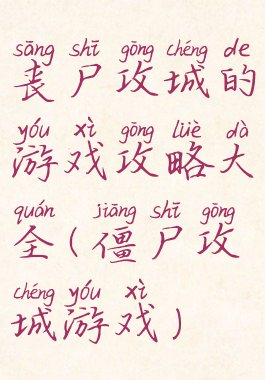 sāng shī gōng chéng de
丧尸攻城的
yóu xì gōng lüè dà
游戏攻略大
quán jiāng shī gōng
全(僵尸攻
chéng yóu xì
城游戏)